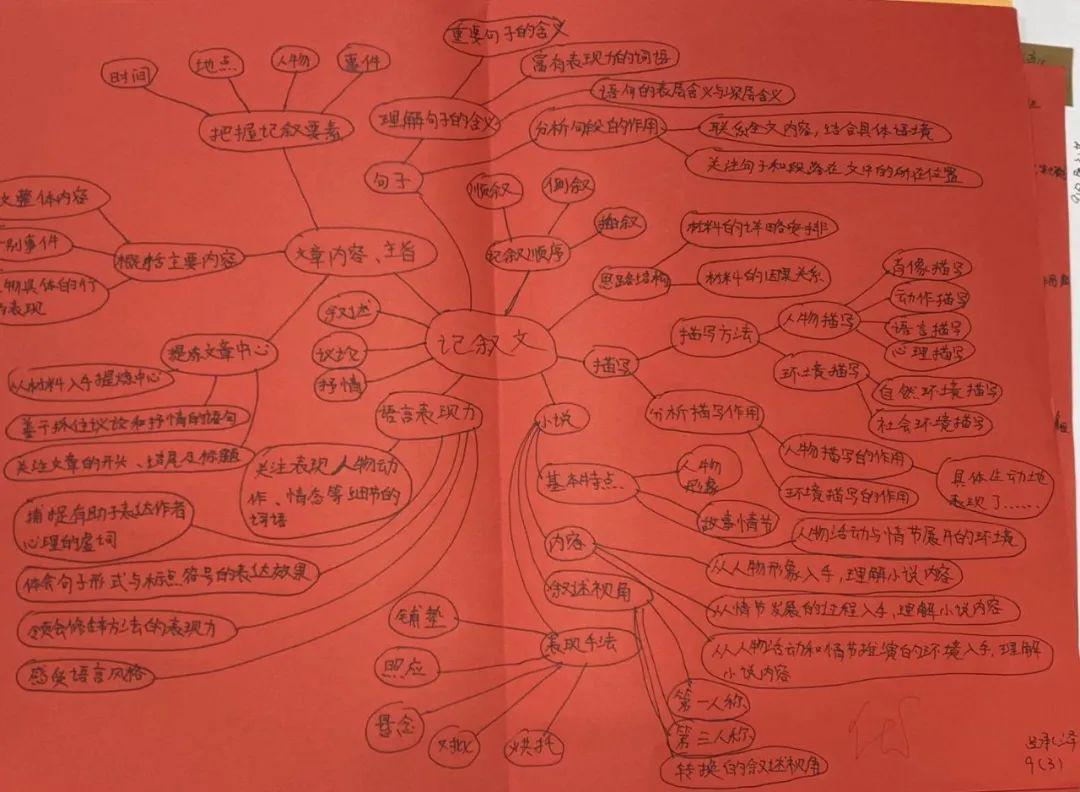 记叙文
文章内容、主旨
把握记叙要素
时间
地点
人物
事件
概括主要内容
文整体内容
别事件
物具体的行
表现
提炼文章中心
从材料入手提炼中心
善于抓住议论和抒情的语句
关注文章的开头、结尾及标题
句子
理解句子的含义
重要句子的含义
富有表现力的词语
语句的表层含义与深层含义
分析句段的作用
联系全文内容,结合具体语境
关注句子和段落在文中的所在位置
记叙顺序
顺叙
倒叙
插叙
思路结构
材料的详略安排
材料的因果关系
描写
描写方法
人物描写
肖像描写
动作描写
语言描写
心理描写
环境描写
自然环境描写
社会环境描写
分析描写作用
人物描写的作用
具体生动地
表现了……
环境描写的作用
叙述
议论
抒情
语言表现力
关注表现人物动
作、情态等细节的
词语
捕捉有助于表达作者
心理的虚词
体会句子形式与标点符号的表达效果
领会修辞方法的表现力
感受语言风格
小说
基本特点
人物
形象
故事情节
人物活动与情节展开的环境
内容
从人物形象入手,理解小说内容
从情节发展的过程入手,理解小说内容
从人物活动和情节推演的环境入手,理解
小说内容
叙述视角
第一人称
第三人称
转换的叙述视角
表现手法
铺垫
照应
悬念
对比
烘托
9(3)